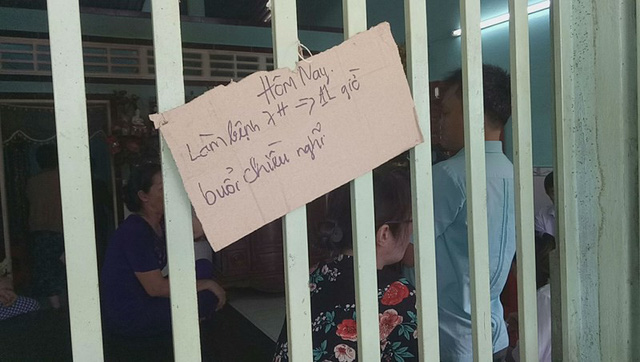 Hôm Nay.
Làm bệnh 7H → 11 giờ
buổi chiều nghĩ